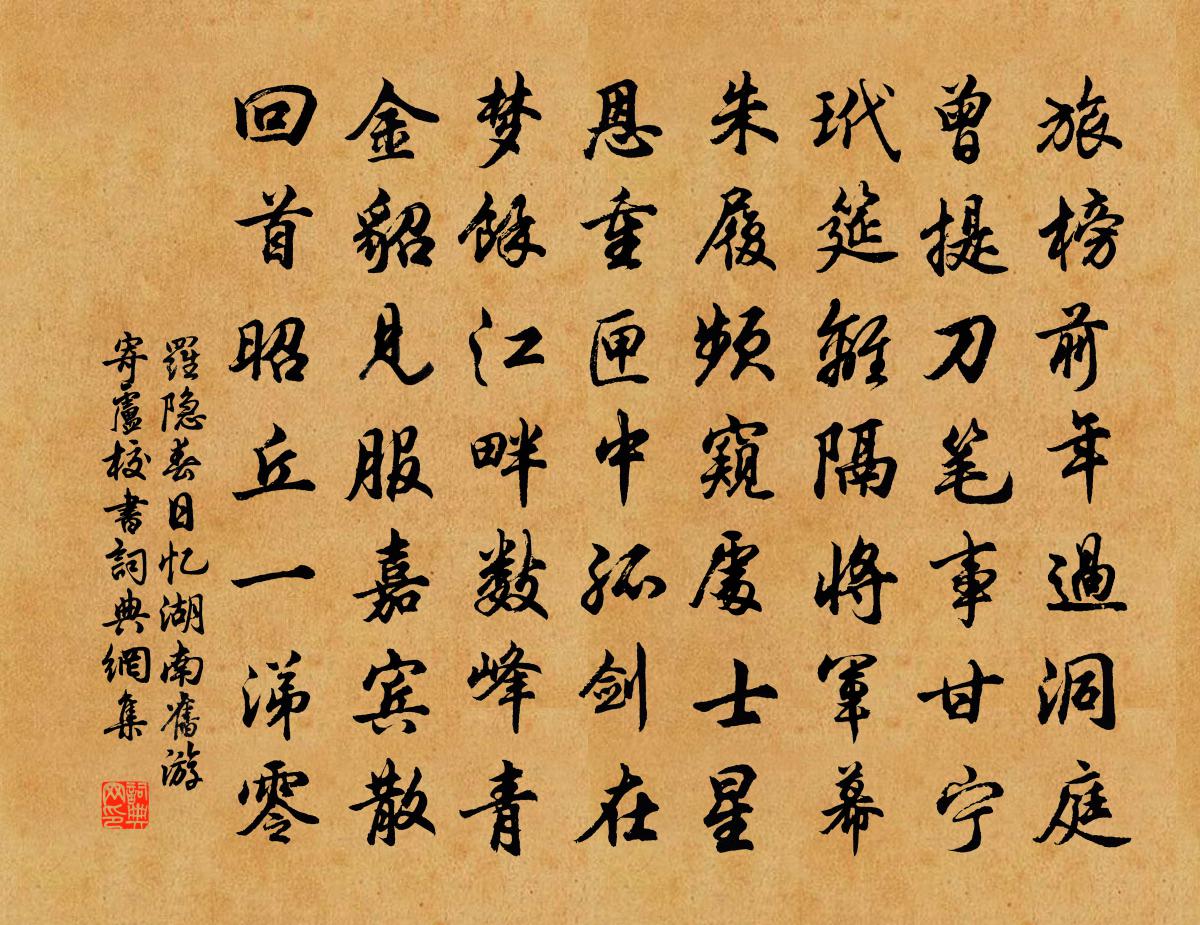 旅榜前年過洞庭
曾提刀笔事甘宁
玳筵離隔將軍幕
朱履頻窺處士星
恩重匣中孤剑在
梦餘江畔數峰青
金貂見服嘉宾散
回首昭丘一涕零
羅隐春日忆湖南舊游
寄盧校書詞典網集
詞典
网印